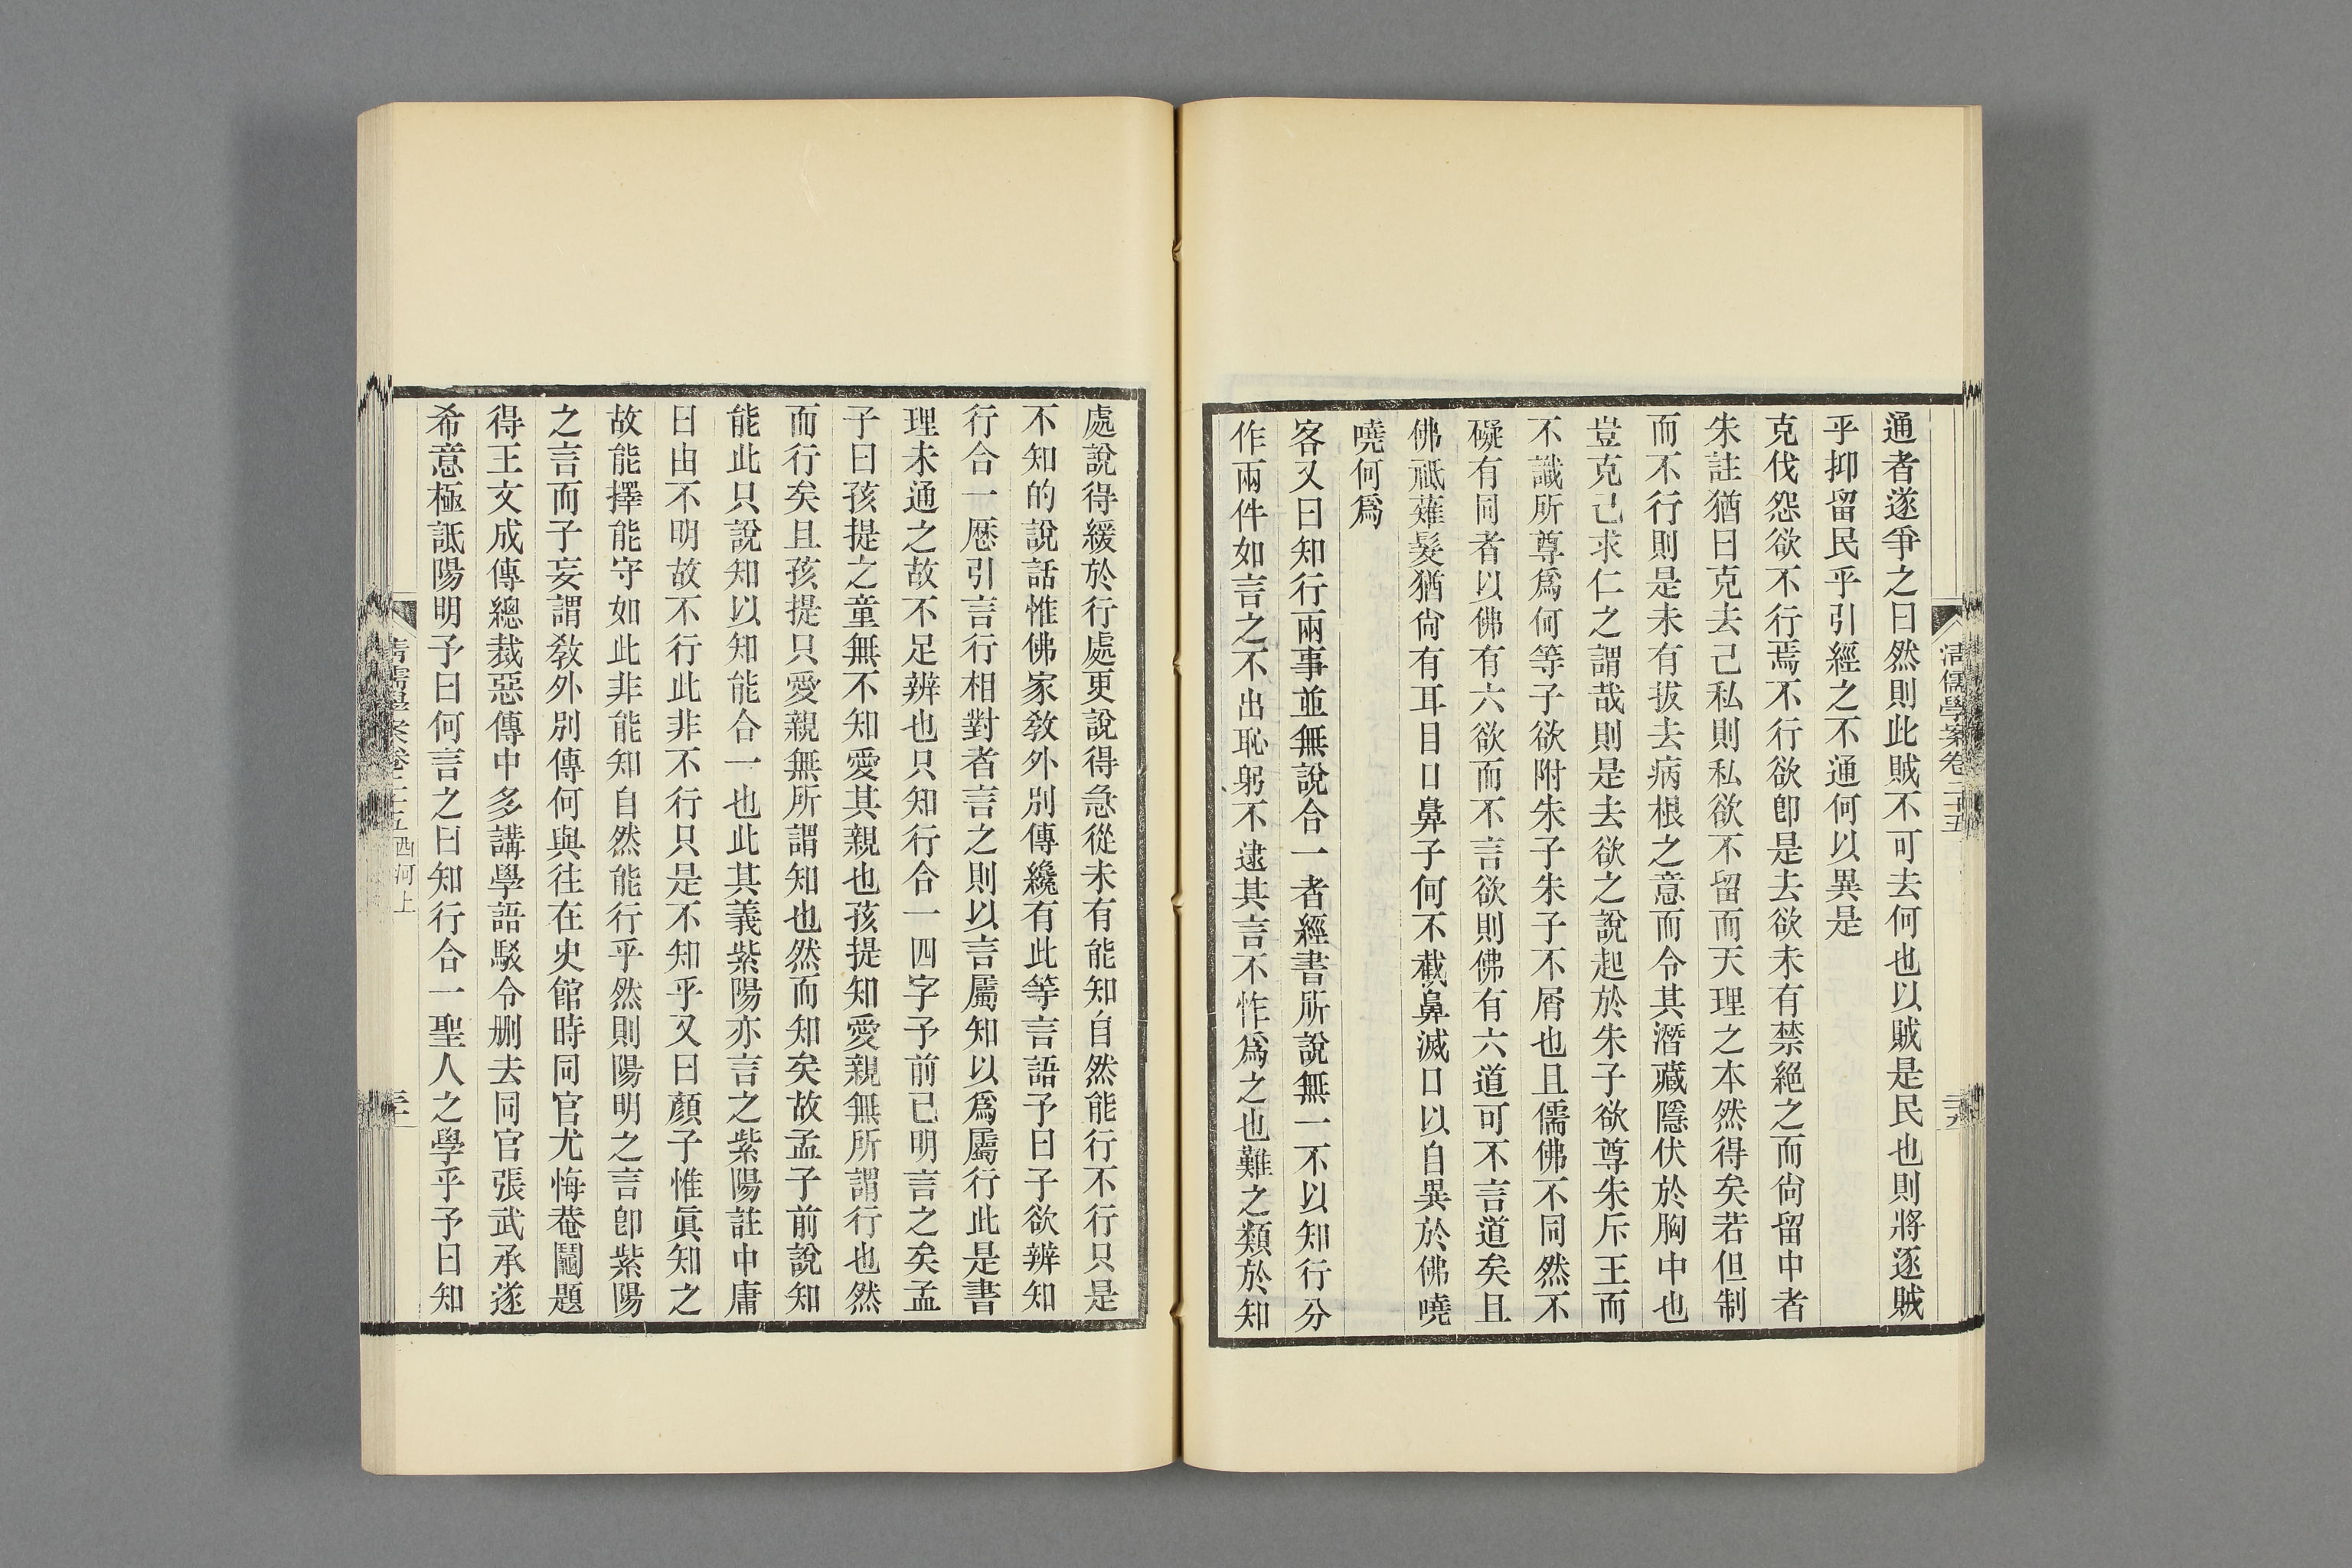 清儒學案卷二十五
通者遂爭之曰然則此賊不可去何也以賊是民也則將逐賊
乎抑留民乎引經之不通何以異是
克伐怨欲不行焉不行欲卽是去欲未有禁絕之而尙留中者
朱註猶曰克去己私則私欲不留而天理之本然得矣若但制
而不行則是未有拔去病根之意而令其潛藏隱伏於胸中也
豈克己求仁之謂哉則是去欲之說起於朱子欲尊朱斥王而
不識所尊爲何等子欲附朱子朱子不屑也且儒佛不同然不
礙有同者以佛有六欲而不言欲則佛有六道可不言道矣且
佛祗薙髮猶尙有耳目口鼻子何不截鼻滅口以自異於佛嘵
嘵何爲
客又曰知行兩事並無說合一者經書所說無一不以知行分
作兩件如言之不出恥躬不逮其言不怍爲之也難之類於知
處說得緩於行處更說得急從未有能知自然能行不行只是
不知的說話惟佛家敎外別傳纔有此等言語予曰子欲辨知
行合一歷引言行相對者言之則以言屬知以爲屬行此是書
理未通之故不足辨也只知行合一四字予前已明言之矣孟
子曰孩提之童無不知愛其親也孩提知愛親無所謂行也然
而行矣且孩提只愛親無所謂知也然而知矣故孟子前說知
能此只說知以知能合一也此其義紫陽亦言之紫陽註中庸
曰由不明故不行此非不行只是不知乎又曰顏子惟眞知之
故能擇能守如此非能知自然能行乎然則陽明之言卽紫陽
之言而子妄謂敎外別傳何與往在史館時同官尤悔菴鬮題
得王文成傳總裁惡傳中多講學語駁令刪去同官張武承遂
希意極詆陽明予曰何言之曰知行合一聖人之學乎予曰知
西河上